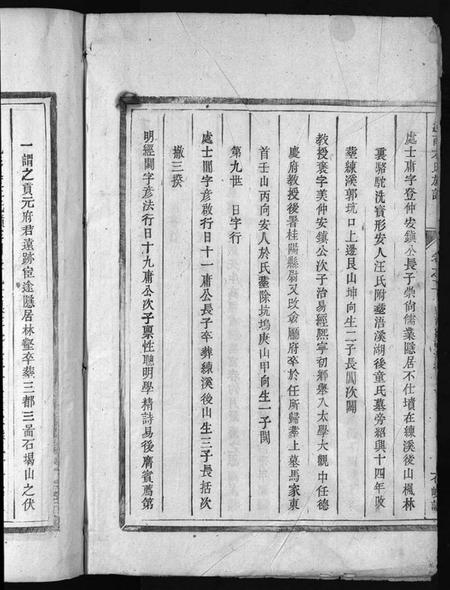 處士庸字登仲安鎮公長子崇尚儒業隱居不仕墳在練溪後山楓林
裏駱駝洗寶形安人汪氏附塟浯溪湖後童氏墓旁紹興十四年改
塟練溪郭坑口上邊艮山坤向生二子長閶次闢
教授褒字美仲安鎮公次子治易經熙寧初鄉舉入太學大觀中任德
慶府教授後署桂陽縣尉又改僉廳府卒於任所歸塟上墓馬家東
首壬山丙向安人於氏塟除坑塢庚山甲向生一子閩
第九世 日字行
處士閶字彥啟行日十一庸公長子卒葬練溪後山生三子長括次
撤三揆
明經闢字彥法行日十九庸公次子稟性聰明學精詩易後膺賓薦第
一謂之貢元府君遠跡宦途隱居林壑卒葬三都三啚石塌山之伏